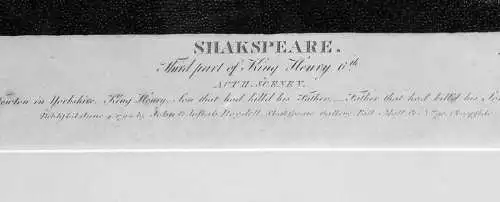 SHAKSPEARE.
Third part of King Henry 6th
ACT II. SCENE V.
Towton in Yorkshire. King Henry, Son that had kill'd his Father, — Father that had kill'd his
John & Josiah Boydell, Shakspeare Gallery Pall Mall &